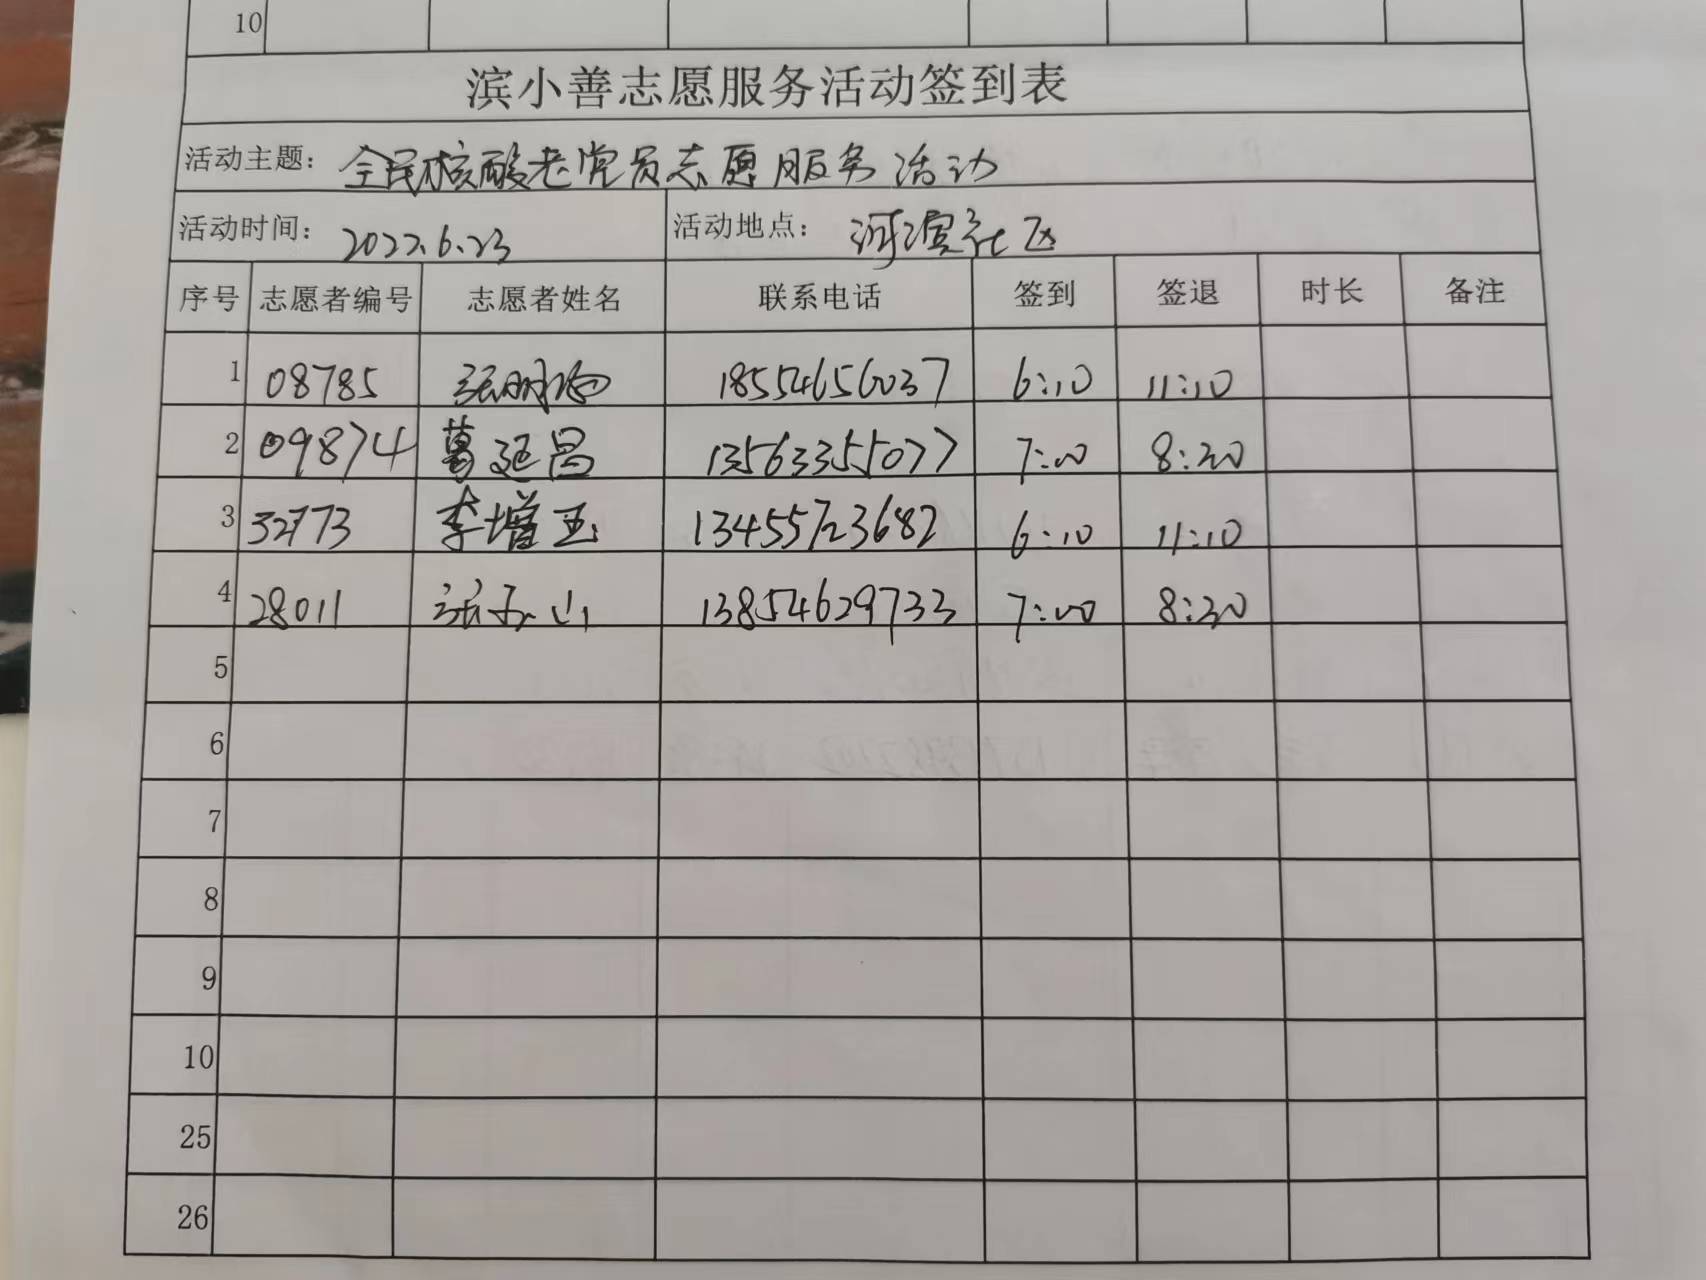 10
滨小善志愿服务活动签到表
活动主题： 全民核酸老党员志愿服务活动
活动时间： 2022.6.23 活动地点： 河滨社区
序号 志愿者编号 志愿者姓名 联系电话 签到 签退 时长 备注
1 08785 张明 18554656037 6:10 11:10
2 09874 葛延昌 13563355077 7:00 8:20
3 32773 李增玉 13455723682 6:10 11:10
4 28011 张 山 13854629733 7:00 8:30
5
6
7
8
9
10
25
26